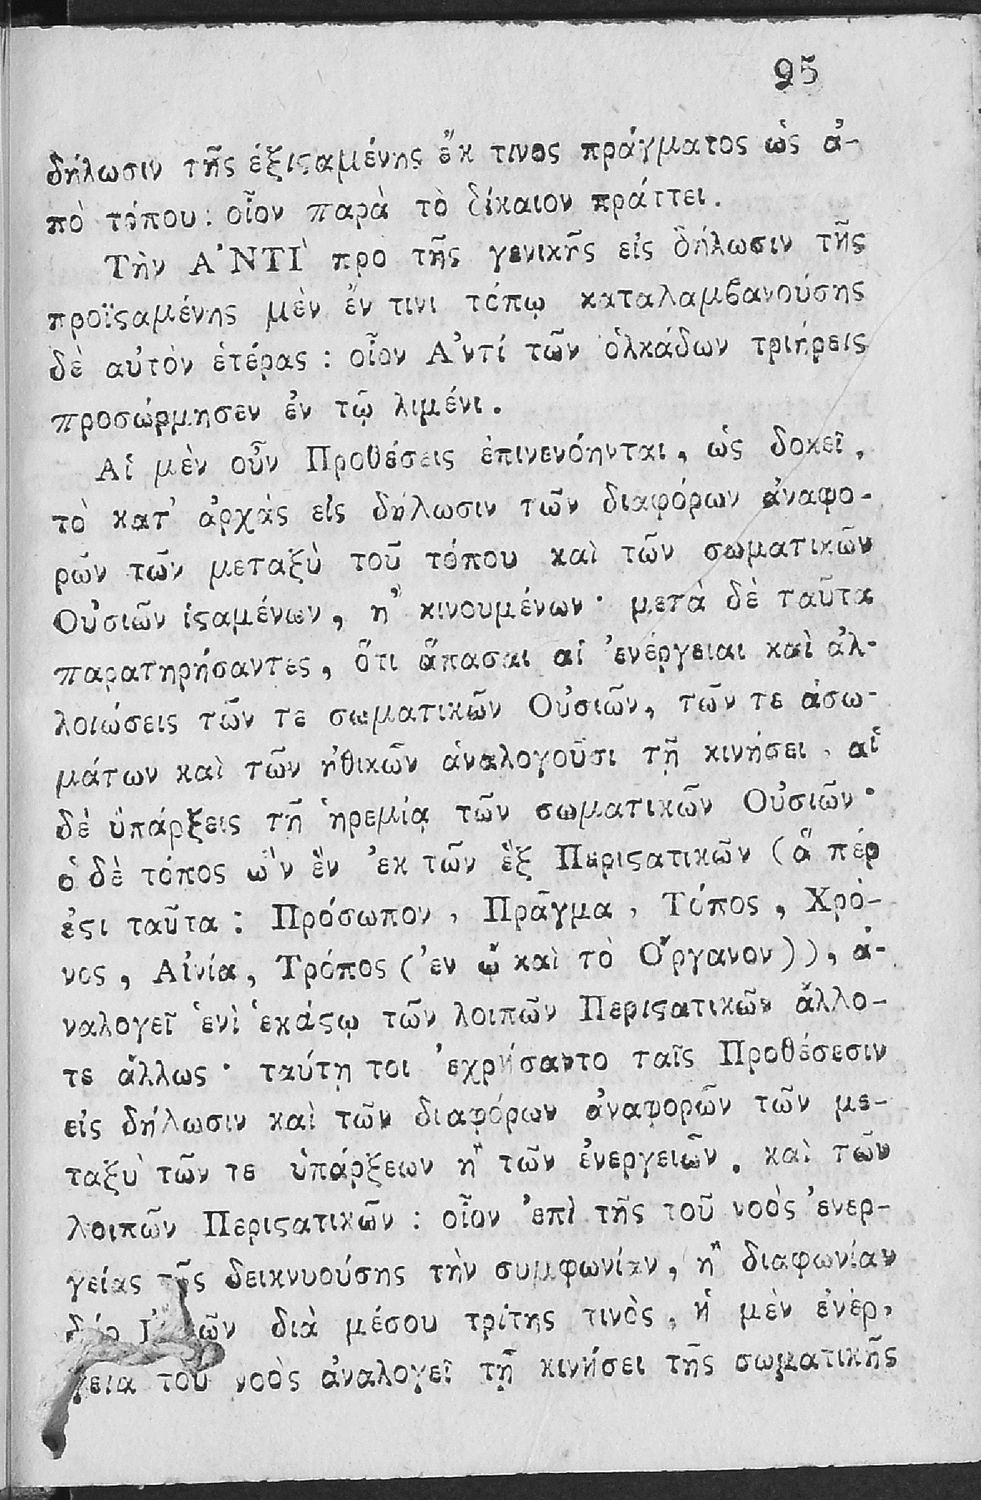 95
δήλωσιν τῆς ἐξιϛαμένης ἔκ τινος πράγματος ὡς ἀ-
πὸ τόπου: οἷον παρὰ τὸ δίκαιον πράττει.
Τὴν Ἀ'ΝΤΙ' προ τῆς γενικῆς εἰς δήλωσιν τῆς
προϊϛαμένης μὲν ἔν τινι τόπῳ καταλαμβανούσης
δὲ αὐτὸν ἑτέρας: οἷον Ἀ'ντί τῶν ὁλκάδων τριήρεις
προσώρμησεν ἐν τῷ λιμένι.
Αἱ μὲν οὖν Προθέσεις ἐπινενόηνται, ὡς δοκεῖ,
τὸ κατ' ἀρχὰς εἰς δήλωσιν τῶν διαφόρων ἀναφο-
ρῶν τῶν μεταξὺ τοῦ τόπου καὶ τῶν σωματικῶν
Οὐσιῶν ἱϛαμένων, ἢ κινουμένων· μετὰ δὲ ταῦτα
παρατηρήσαντες, ὅτι ἅπασαι αἱ ἐνέργειαι καὶ ἀλ-
λοιώσεις τῶν τε σωματικῶν Οὐσιῶν, τῶν τε ἀσω-
μάτων καὶ τῶν ἠθικῶν ἀναλογοῦσι τῇ κινήσει, αἱ
δὲ ὑπάρξεις τῇ ἠρεμίᾳ τῶν σωματικῶν Οὐσιῶν·
ὁ δὲ τόπος ὢν ἓν ἐκ τῶν ἓξ Περιϛατικῶν (ἅ πέρ
ἐϛι ταῦτα: Πρόσωπον, Πρᾶγμα, Τόπος, Χρό-
νος, Αἰνία, Τρόπος (ἐν ᾧ καὶ τὸ Ὄργανον)), ἀ-
ναλογεῖ ἑνὶ ἑκάϛῳ τῶν λοιπῶν Περιϛατικῶν ἄλλο-
τε ἄλλως· ταύτῃ τοι ἐχρήσαντο ταῖς Προθέσεσιν
εἰς δήλωσιν καὶ τῶν διαφόρων ἀναφορῶν τῶν με-
ταξὺ τῶν τε ὑπάρξεων ἢ τῶν ἐνεργειῶν, καὶ τῶν
λοιπῶν Περιϛατικῶν: οἷον ἐπὶ τῆς τοῦ νοὸς ἐνερ-
γείας τῆς δεικνυούσης τὴν συμφωνίαν, ἢ διαφωνίαν
διὰ μέσου τρίτης τινὸς, ἡ μὲν ἐνέρ-
γεια τοῦ νοὸς ἀναλογεῖ τῇ κινήσει τῆς σωματικῆς